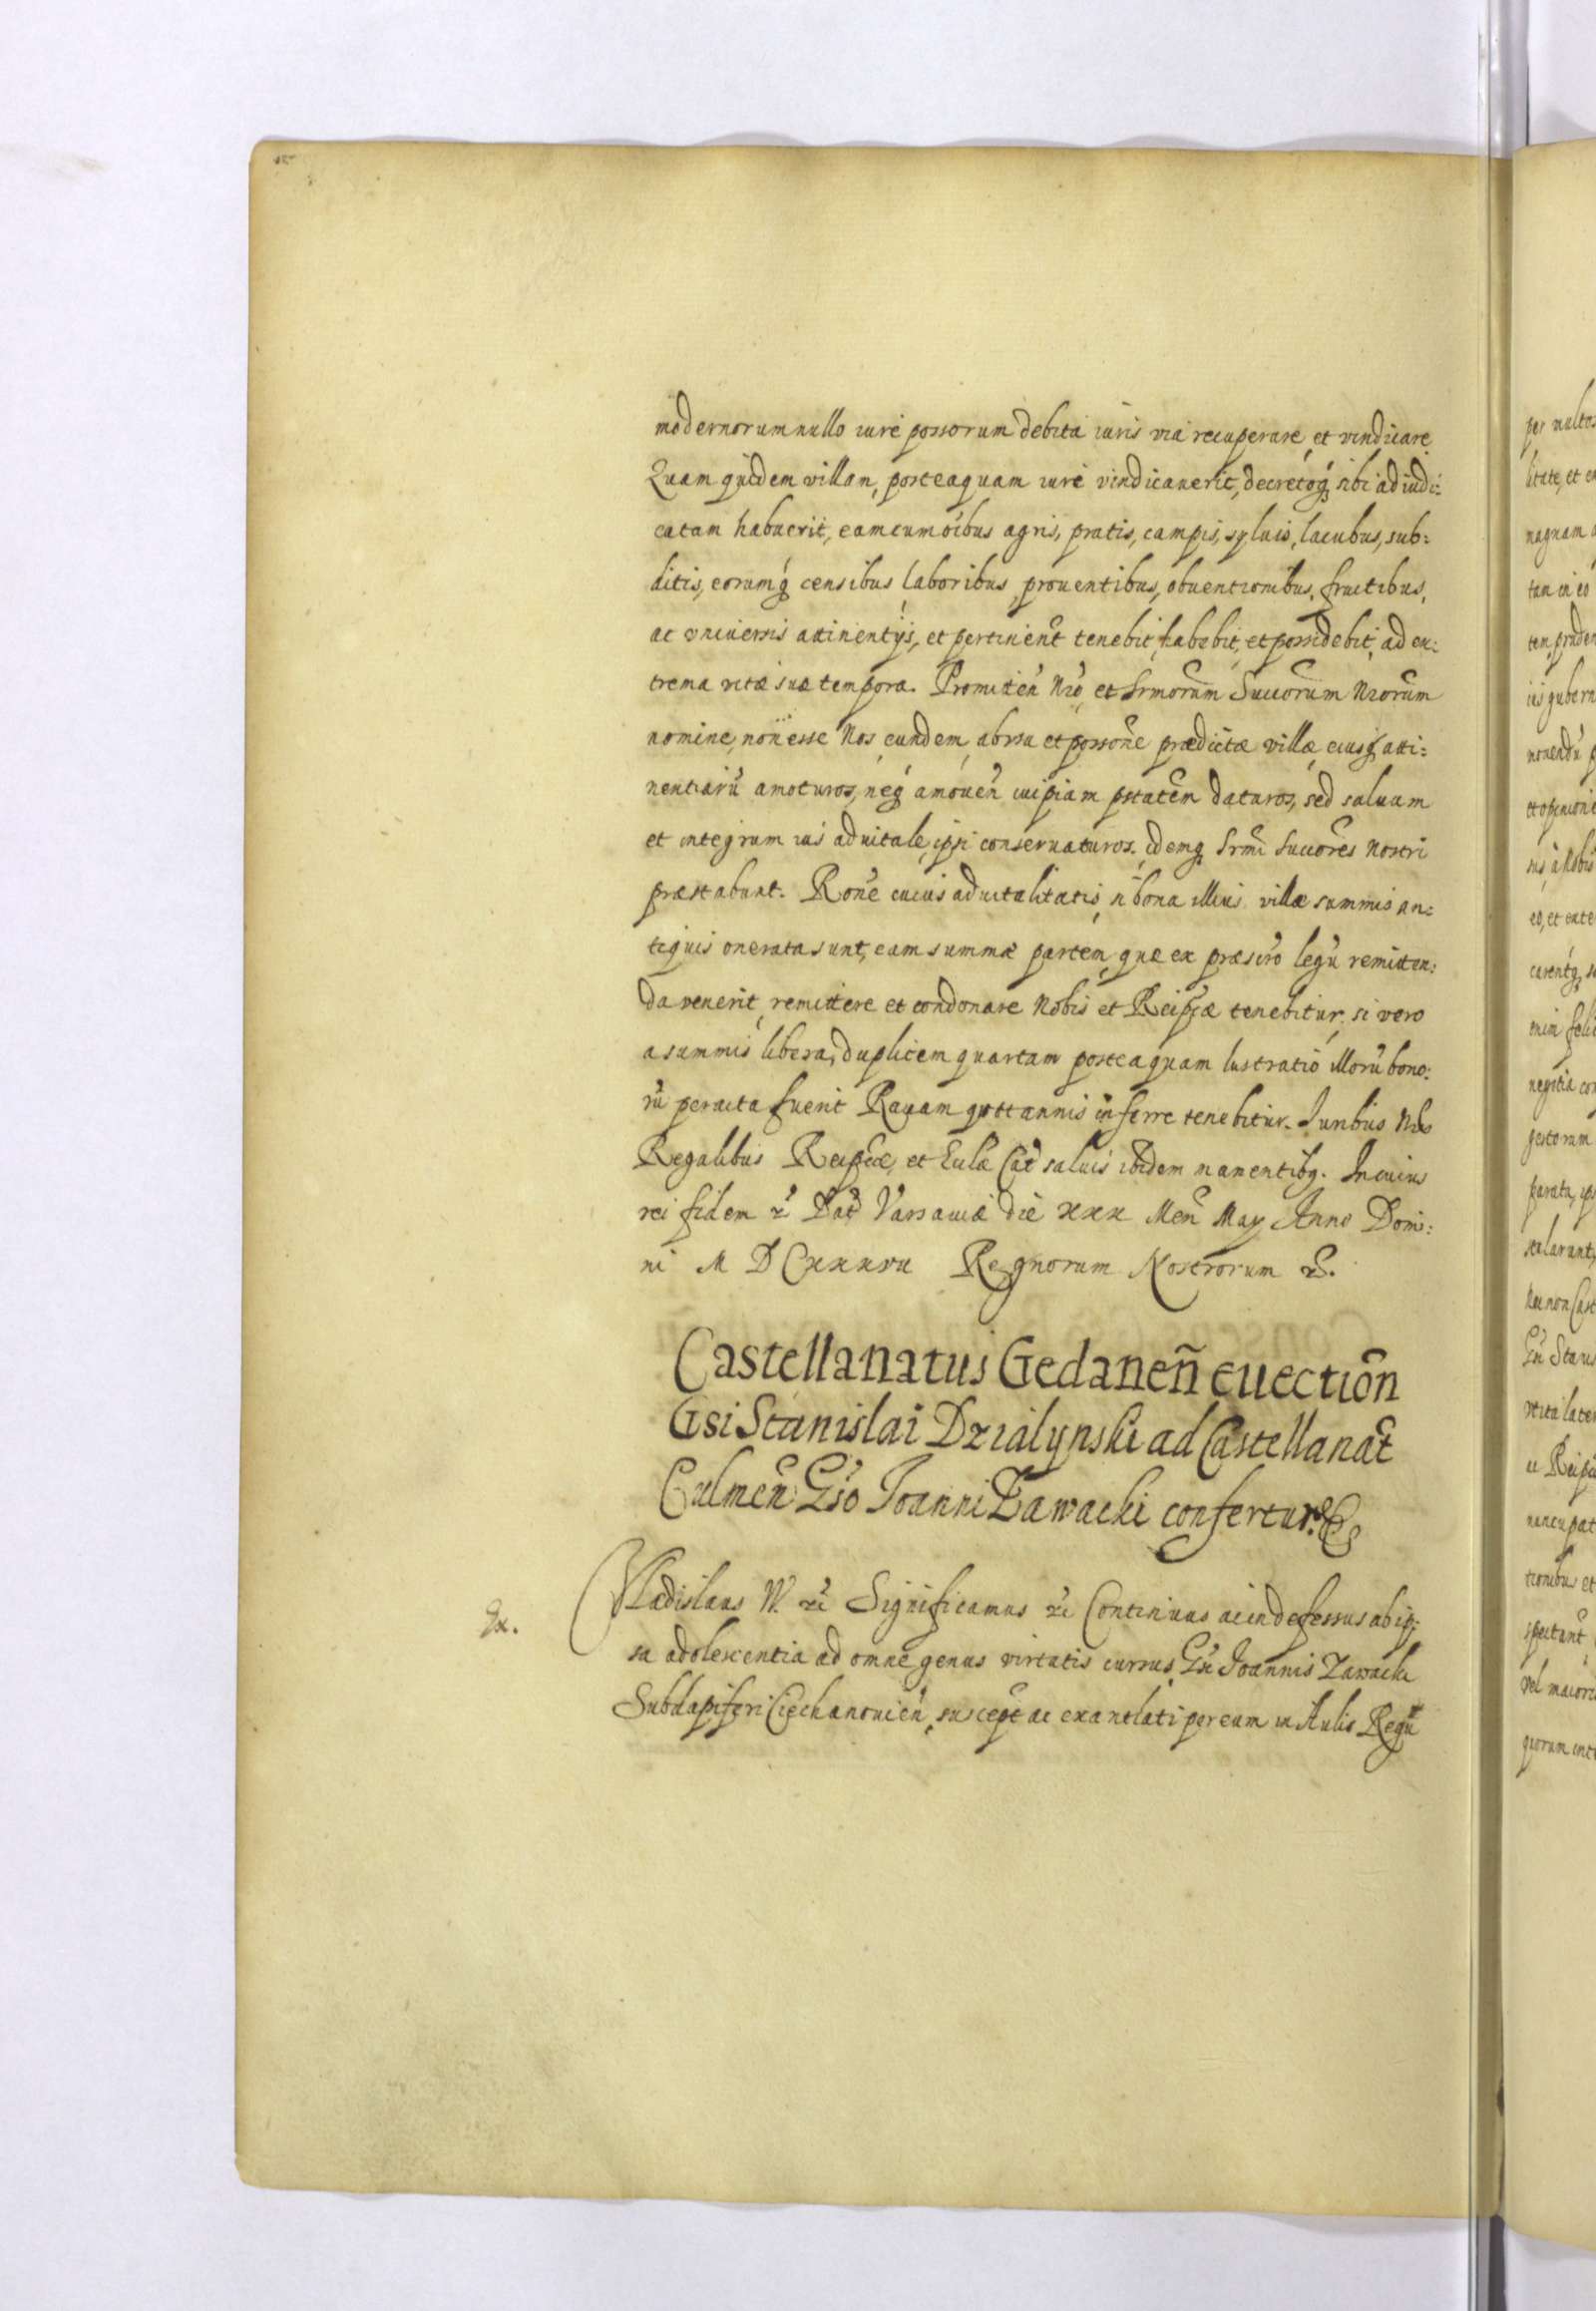 modernorum nullo iure possorum debita iuris via recuperare, et vindicare
Quam quidem villam, posteaquam iure vindicauerit, decretoq sibi adiudi:
catam habuerit, eam cum oibus agris, pratis, campis, syluis, lacubus, sub:
ditis, eorumq censibus laboribus, prouentibus, obuentionibus, fructibus,
ac vniuersis attinentijs, et pertinent tenebit, habebit, et possidebit, ad ex:
trema vitæ suæ tempora. Promitten Nro, et Srmorum Succorum Nrorum
nomine, non esse Nos, eundem, ab vsu et possone prædictæ villæ, eiusq atti:
nentiarū amoturos, neq amouen cuipiam ptatem daturos, sed saluam
et integrum ius aduitale, ipsi conseruaturos. idemq Srmi Succores Nostri
præstabunt. Rone cuius aduitalitatis, si bona illius villæ summis an:
tiquis onerata sunt, eam summæ partem, quæ ex præscro legū remitten:
da venerit, remittere et condonare Nobis et Reipcæ tenebitur, si vero
a summis libera, duplicem quartam posteaquam lustratio illorū bono:
rū peracta fuerit Rauam quottannis inferre tenebitur. Iuribus Nris
Regalibus Reipcæ, et Eclæ Cat saluis ibidem manentibq. In cuius
rei fidem &c Dat Varsauiæ die xxx Men May Anno Domi:
ni M D Cxxxvii Regnorum Nostrorum &c.
Castellanatus Gedaneñ euection
Gsi Stanislai Dzialynski ad Castellanat
Culmen Gso Ioanni Zawacki confertur.
Ex.
Vladislaus IV. &c Significamus &c Continuus ac indefessus ab ip:
sa adolescentia ad omne genus virtutis cursus, Gsi Ioannis Zawacki
Subdapiferi Ciechanouien, suscept ac exantlati per eum in Aulis Regū